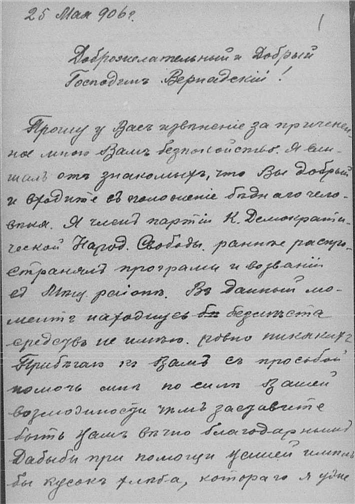 25 Мая 906 г.
Доброжелательный и Добрый
Господинъ Вернадскій!
Прошу у Васъ извѣненіе за приченен-
ное мною Вамъ безпокойство. Я слы-
шалъ отъ знакомыхъ, что Вы добрый
и входите съ положеніе бѣднаго чело-
вѣка. Я членъ партіи К. Демократи-
ческой Народ. Свободы. раньше распро-
странялъ програмы и возваній
ея районѣ. Въ данный мо-
ментъ нахожусь безъ мѣста
средствъ не имѣю. ровно никакихъ
Прибѣгаю къ Вамъ съ просьбой
помочь мнѣ по силѣ Вашей
возможности чѣмъ заставите
быть Вамъ вѣчно благодарнымъ
Дабы при помощи Вашей имѣлъ
бы кусокъ хлѣба, котораго я